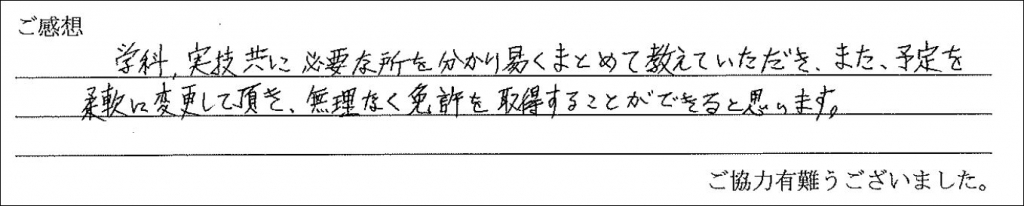 ご感想
学科,実技共に必要な所を分かり易くまとめて教えていただき、また、予定を
柔軟に変更して頂き、無理なく免許を取得することができると思います。
ご協力有難うございました。